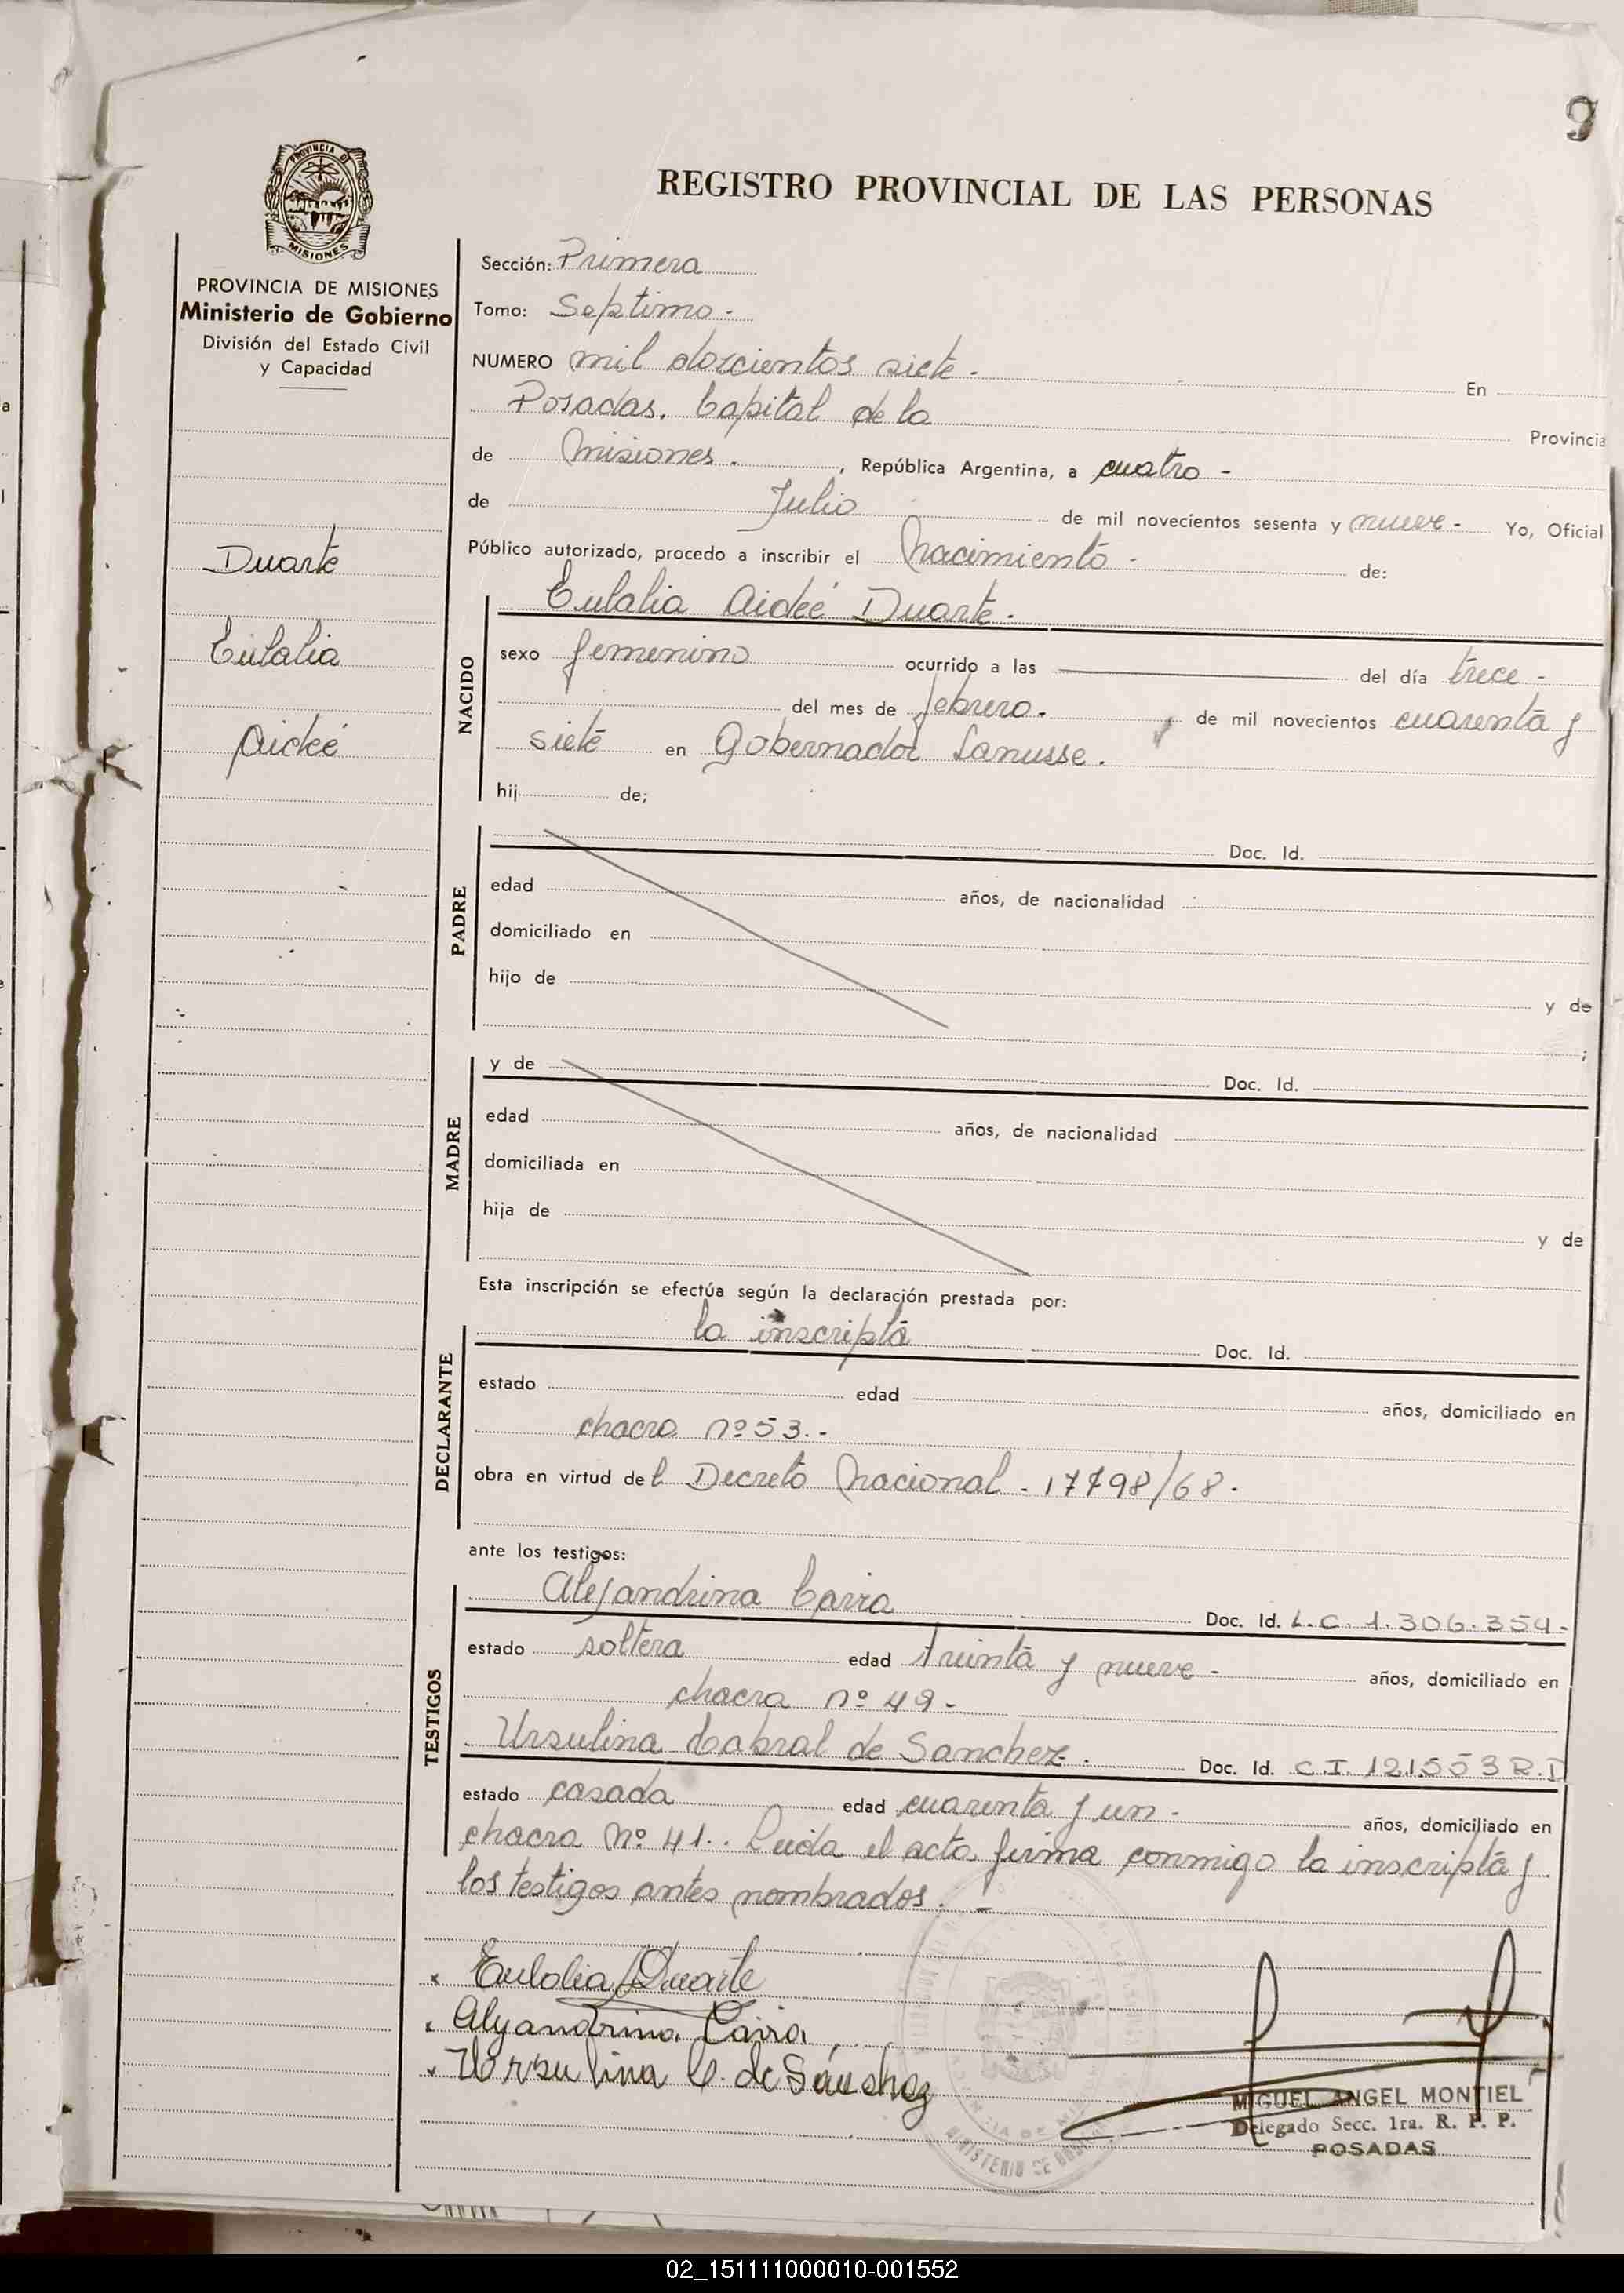 9
REGISTRO PROVINCIAL DE LAS PERSONAS
PROVINCIA DE
MISIONES
PROVINCIA DE MISIONES
Ministerio de Gobierno
División del Estado Civil
y Capacidad
Duarte
Eulalia
Aideé
Sección: Primera
Tomo: Septimo.-
NUMERO mil doscientos siete.- En
Posadas. Capital de la Provincia
de Misiones., República Argentina, a cuatro-
de Julio de mil novecientos sesenta y nueve- Yo, Oficial
Público autorizado, procedo a inscribir el Nacimiento- de:
NACIDO
Eulalia Aideé Duarte.
sexo femenino ocurrido a las del día trece-
del mes de febrero. de mil novecientos cuarenta y
siete en Gobernador Lanusse.
hij de;
PADRE
Doc. Id.
edad años, de nacionalidad
domiciliado en
hijo de y de
;
MADRE
y de Doc. Id.
edad años, de nacionalidad
domiciliada en
hija de y de
Esta inscripción se efectúa según la declaración prestada por:
DECLARANTE
la inscripta Doc. Id.
estado edad años, domiciliado en
chacra nº 53.-
obra en virtud del Decreto Nacional- 17798/68.
ante los testigos:
TESTIGOS
Alejandrina Cavia Doc. Id. L.C. 1.306.354-
estado soltera edad treinta y nueve- años, domiciliado en
chacra nº 49-
Ursulina Cabral de Sanchez. Doc. Id. C.I. 121553 R.P
estado casada edad cuarenta y un- años, domiciliado en
chacra nº 41.. Leida el acta firma conmigo la inscripta y
los testigos antes nombrados.-
Eulalia Duarte
Alejandrina Cavia
Ursulina C. de Sánchez
MINISTERIO DE
MIGUEL ANGEL MONTIEL
Delegado Secc. 1ra. R. P. P.
POSADAS
02_151111000010-001552